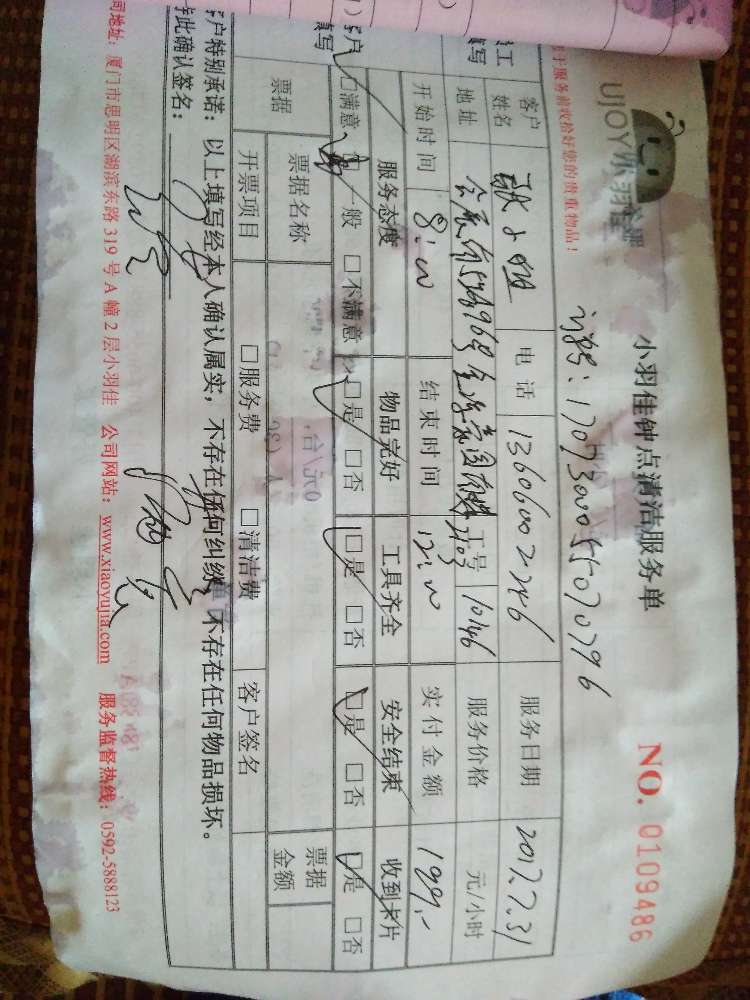 UJOY小羽佳
小羽佳钟点清洁服务单
NO. 0109486
于服务前收拾好您的贵重物品！
客户姓名
电话 13606002246
服务日期 2017.7.31
地址
工号 10146
服务价格 元/小时
开始时间 8:00
结束时间 12:00
实付金额 199.-
服务态度 物品完好 工具齐全 安全结束 收到卡片
□满意 □一般 □不满意 □是 □否 □是 □否 □是 □否 □是 □否
票据 票据名称 票据金额
开票项目 □服务费 □清洁费 客户签名
客户特别承诺：以上填写经本人确认属实，不存在任何纠纷，不存在任何物品损坏。
此确认签名：
司地址：厦门市思明区湖滨东路 319 号 A 幢 2 层小羽佳 公司网站：www.xiaoyujia.com 服务监督热线：0592-5888123